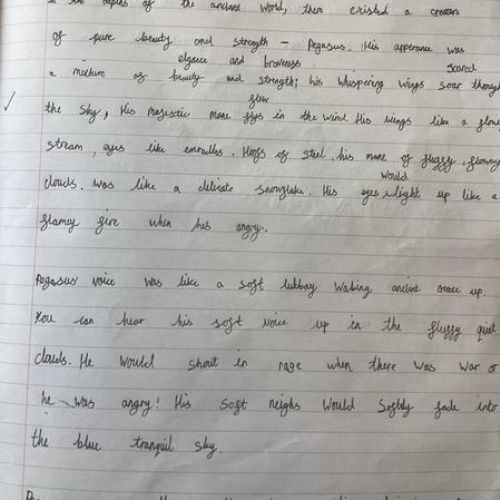 In the depths of the ancient world, there existed a creature
of pure beauty and strength – Pegasus. His apperance was
elgance and bravenss soared
a mixture of beauty and strength; his whispering wings soar through
flew
the sky, His majestic mane flys in the wind. His wings like a flowi
stream, eyes like emraulds. Hoofs of steel. his mane of fluffy, flowey
would
clouds. was like a delicate snowflake. His eyes light up like a
flamey fire when hes angry.
Pegasus' voice was like a soft lubbay waking ancient up.
You can hear his soft voice up in the fluffy quiet
clouds. He would shout in rage when there was war or
he was angry! His soft neighs would softly fade into
the blue tranquil sky.